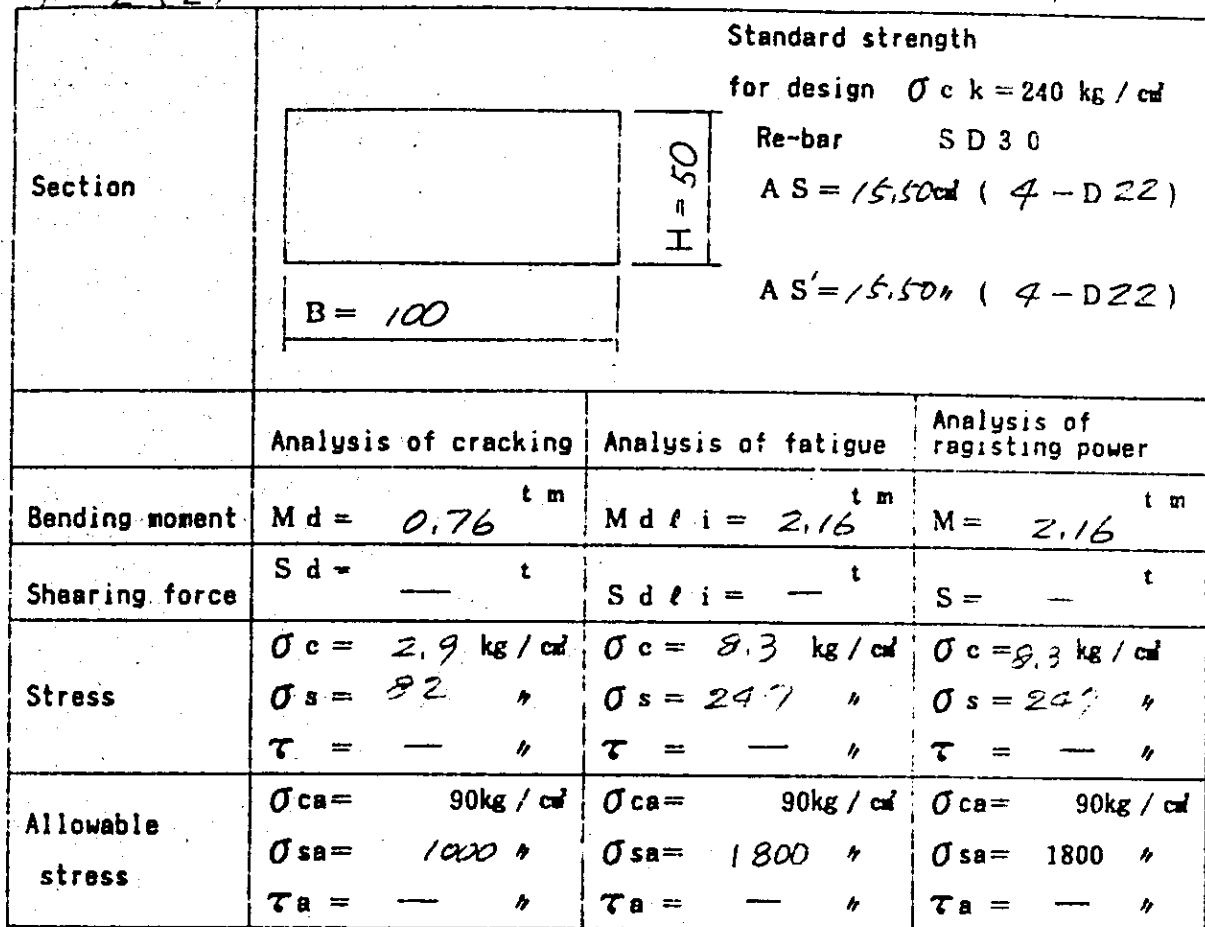 Section
Standard strength
for design σ c k = 240 kg / cm²
Re-bar S D 3 0
H = 50
A S = 15.50 cm² ( 4 - D 22 )
A S' = 15.50 〃 ( 4 - D 22 )
B = 100
Analysis of cracking Analysis of fatigue Analysis of ragisting power
Bending moment M d = 0.76 t m M d ℓ i = 2.16 t m M = 2.16 t m
Shearing force S d = — t S d ℓ i = — t S = — t
Stress
σ c = 2.9 kg / cm² σ c = 8.3 kg / cm² σ c = 8.3 kg / cm²
σ s = 82 〃 σ s = 247 〃 σ s = 〃
τ = — 〃 τ = — 〃 τ = — 〃
Allowable stress
σ ca= 90kg / cm² σ ca= 90kg / cm² σ ca= 90kg / cm²
σ sa= 1000 〃 σ sa= 1800 〃 σ sa= 1800 〃
τ a = — 〃 τ a = — 〃 τ a = — 〃